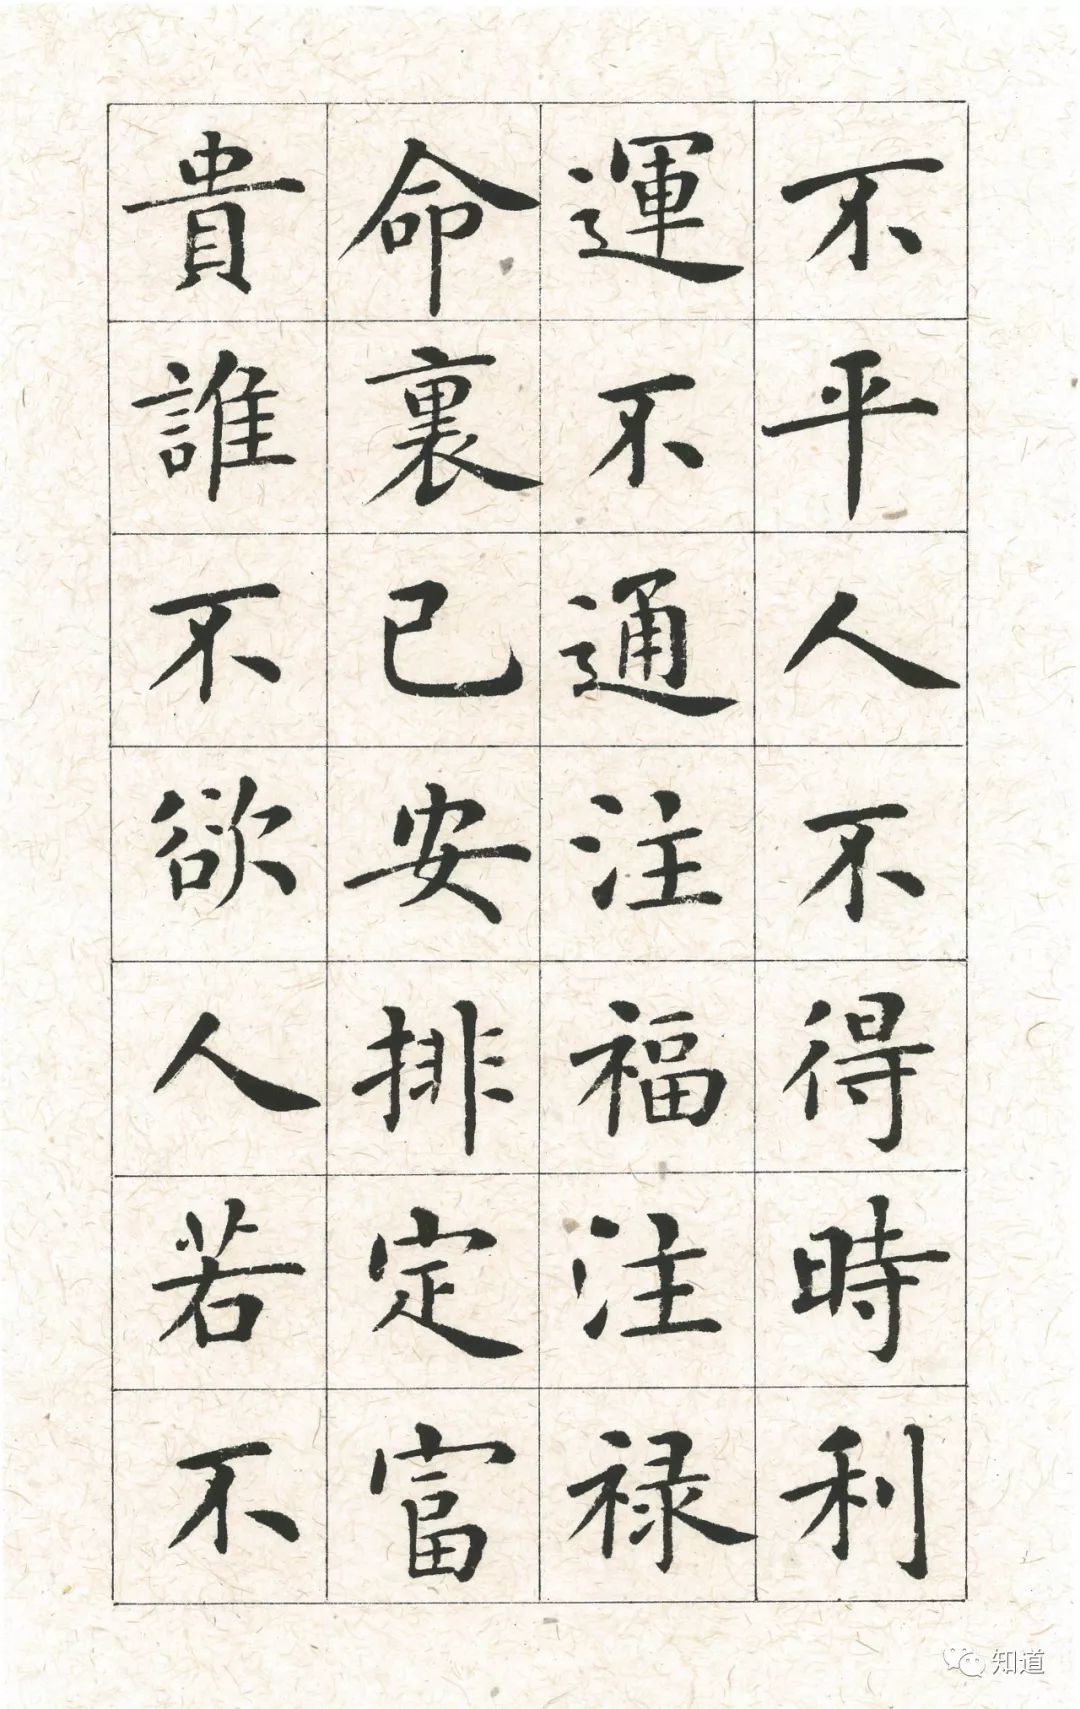 不平人不得時利
運不通注福注禄
命裏已安排定富
貴誰不欲人若不
知道